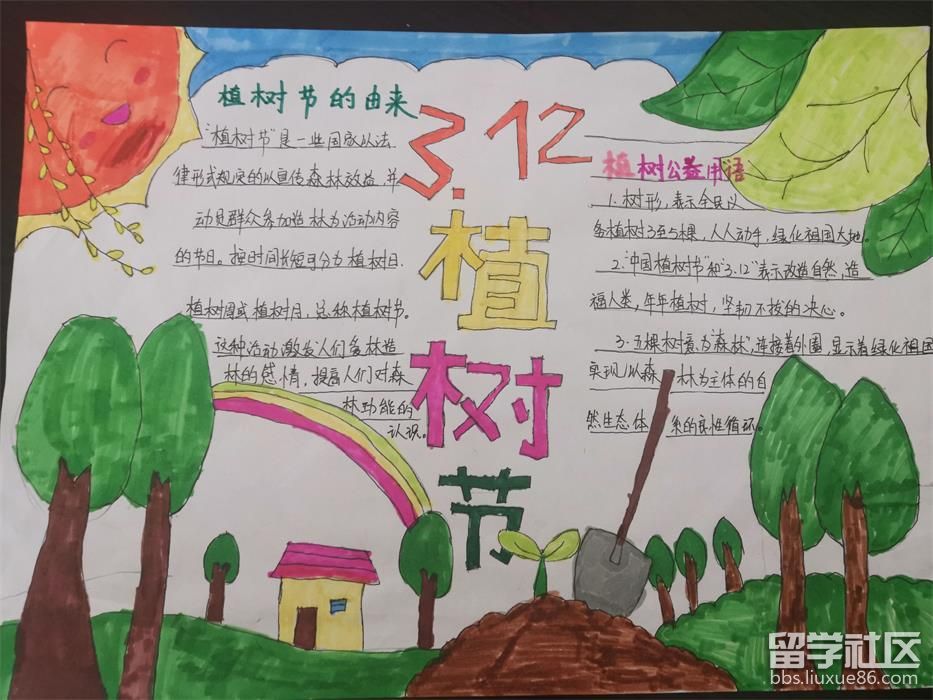 植树节的由来
"植树节"是一些国家以法
律形式规定的以宣传森林效益,并
动员群众参加造林为活动内容
的节日。按时间长短可分为植树日.
植树周或植树月,总称植树节。
这种活动激发人们爱林造
林的感情,提高人们对森
林功能的
认识。
3.12
植
树
节
植树公益用语
1.树形,表示全民义
务植树3至5棵,人人动手,绿化祖国大地。
2."中国植树节"和"3.12"表示改造自然,造
福人类,年年植树,坚韧不拔的决心。
3.五棵树意为"森林",连接着外圈,显示着绿化祖国
实现以森林为主体的自
然生态体系的良性循环。
留学社区
bbs.liuxue86.com